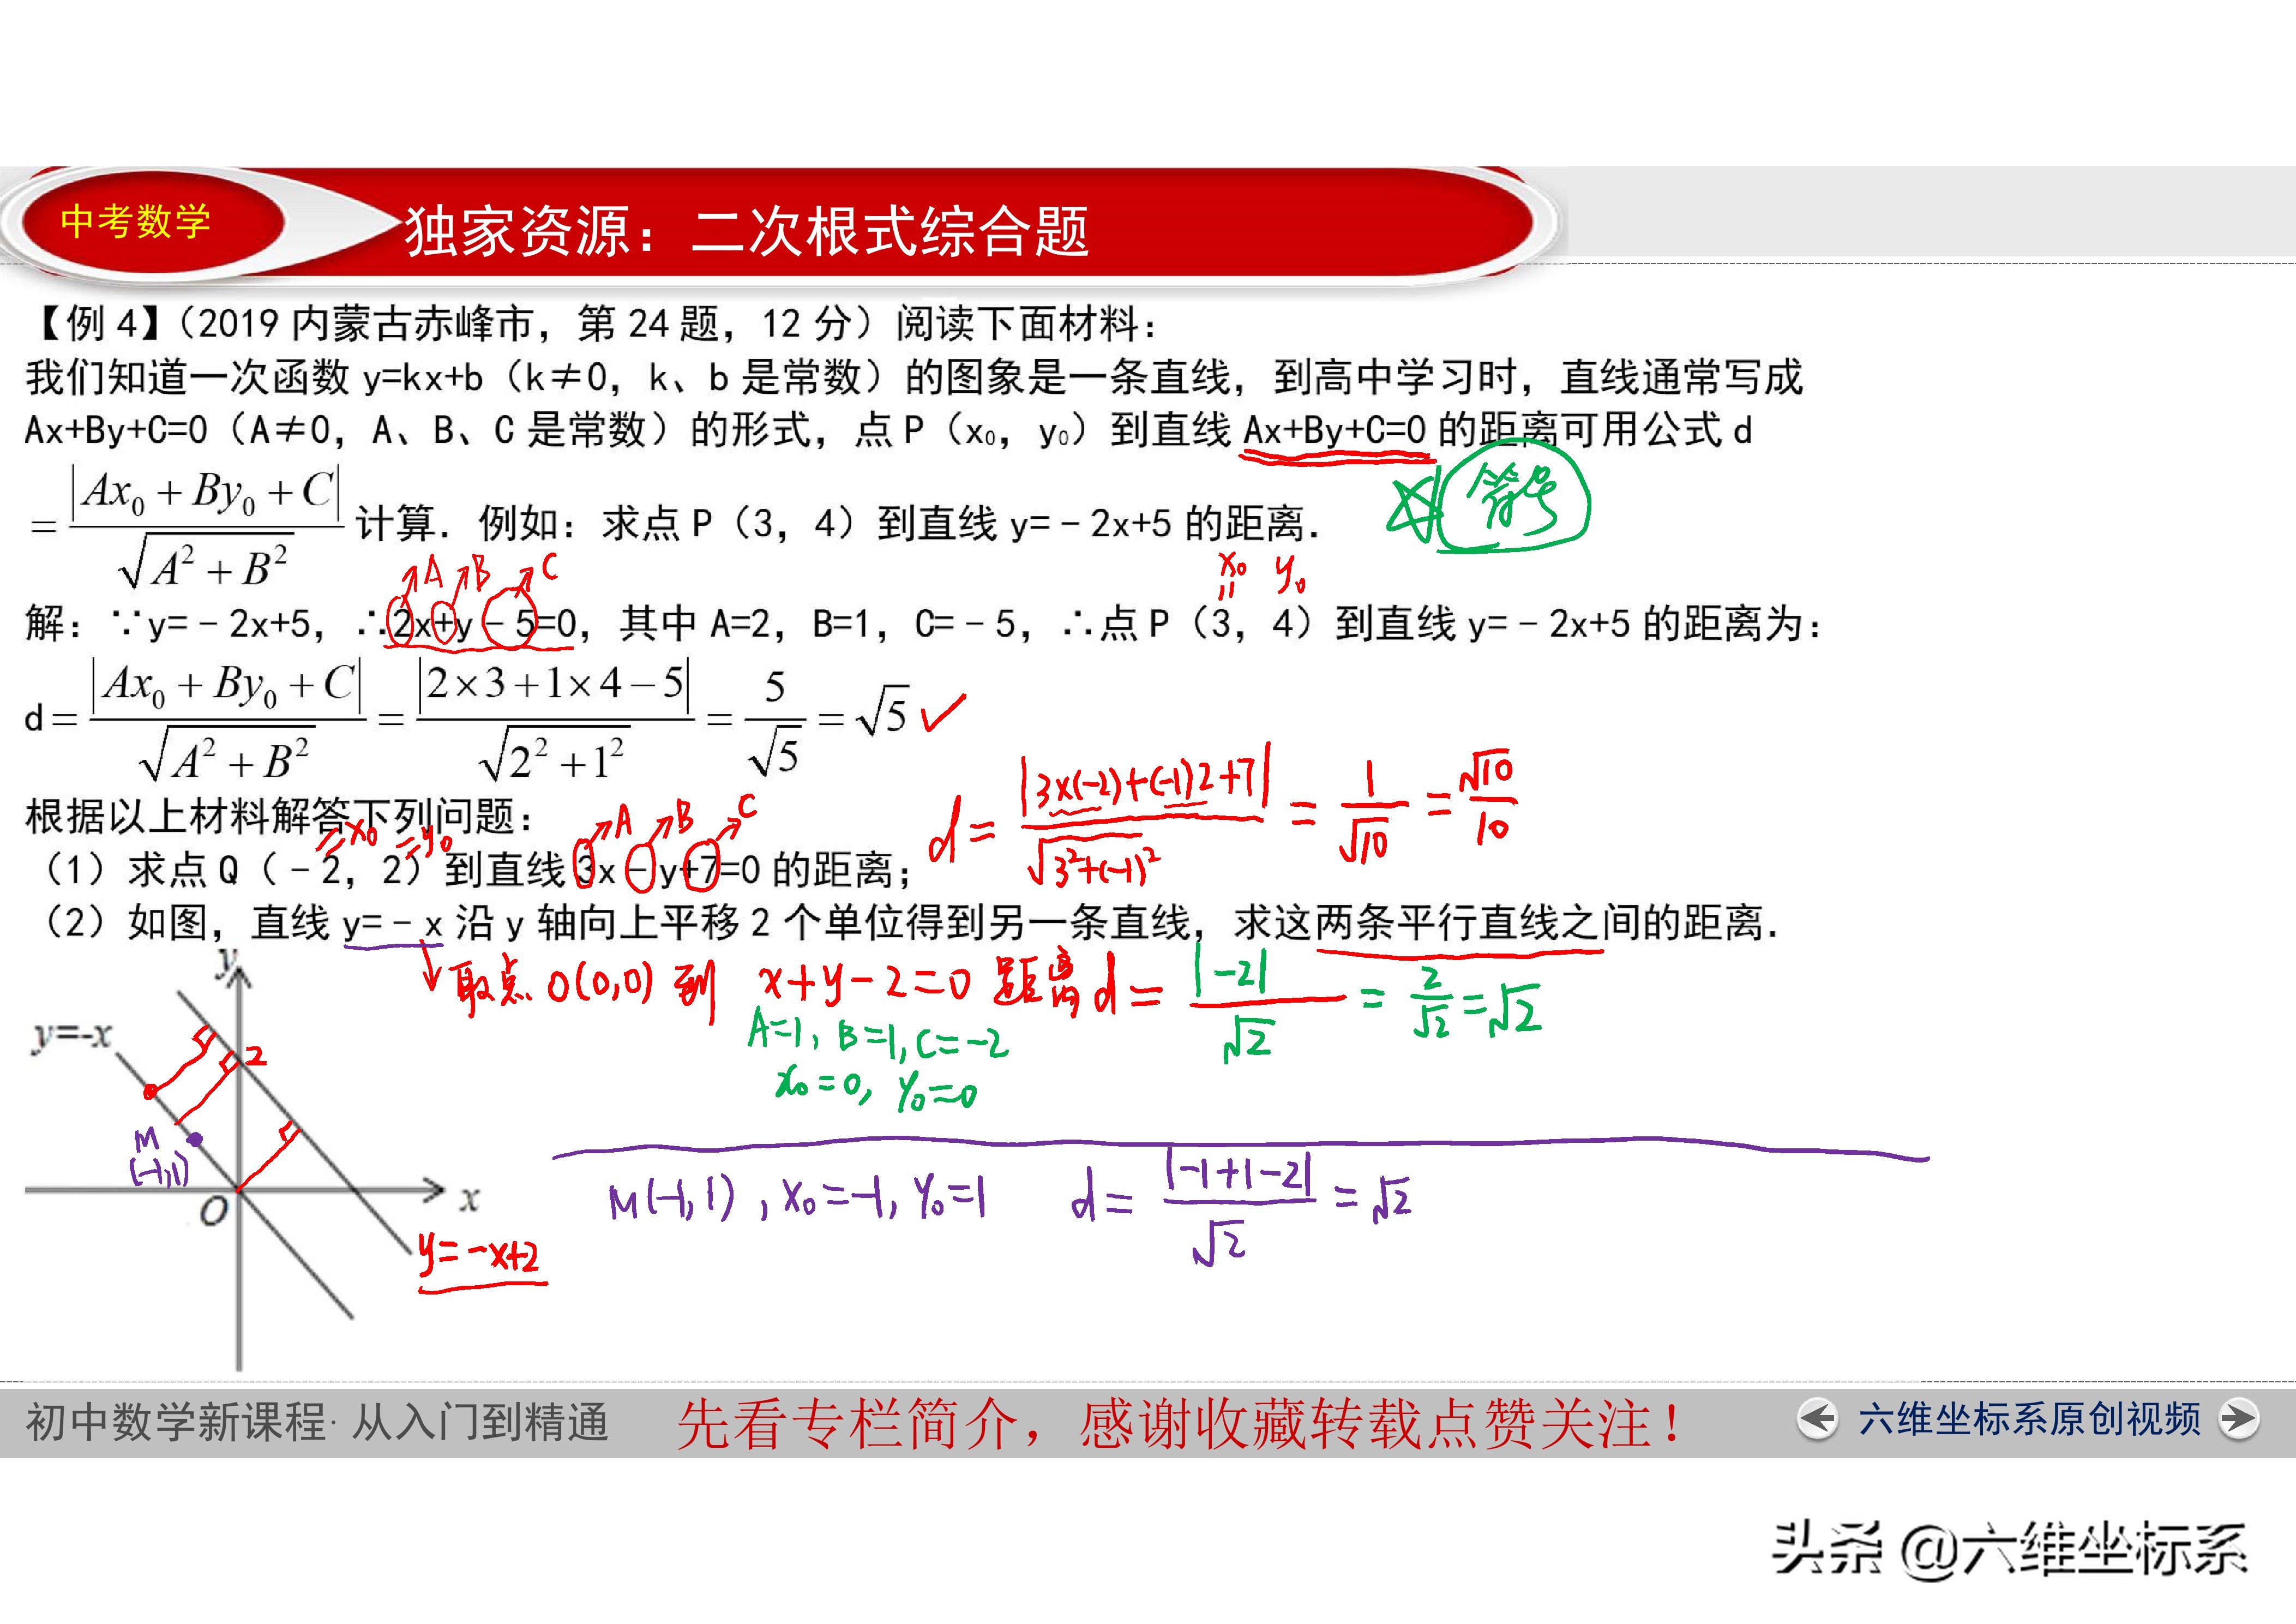 中考数学
独家资源：二次根式综合题
【例4】（2019内蒙古赤峰市，第24题，12分）阅读下面材料：
我们知道一次函数y=kx+b（k≠0，k、b是常数）的图象是一条直线，到高中学习时，直线通常写成
Ax+By+C=0（A≠0，A、B、C是常数）的形式，点P（x₀，y₀）到直线Ax+By+C=0的距离可用公式d
=|Ax₀+By₀+C|/√(A²+B²) 计算．例如：求点P（3，4）到直线y=﹣2x+5的距离．
符号
A B C
x₀ y₀
=
解：∵y=﹣2x+5，∴2x+y﹣5=0，其中A=2，B=1，C=﹣5，∴点P（3，4）到直线y=﹣2x+5的距离为：
d=|Ax₀+By₀+C|/√(A²+B²)=|2×3+1×4−5|/√(2²+1²)=5/√5=√5 ✓
根据以上材料解答下列问题：
=x₀ =y₀ A B C
d=|3×(-2)+(-1)2+7|/√(3²+(-1)²)=1/√10=√10/10
（1）求点Q（﹣2，2）到直线3x﹣y+7=0的距离；
（2）如图，直线y=﹣x沿y轴向上平移2个单位得到另一条直线，求这两条平行直线之间的距离．
取点O(0,0)到 x+y-2=0 距离为 d=|-2|/√2=2/√2=√2
A=1, B=1, C=-2
x₀=0, y₀=0
y
y=-x
2
M
(-1,1)
O
x
y=-x+2
M(-1,1), x₀=-1, y₀=1 d=|-1+1-2|/√2=√2
初中数学新课程· 从入门到精通
先看专栏简介，感谢收藏转载点赞关注！
六维坐标系原创视频
头条 @六维坐标系